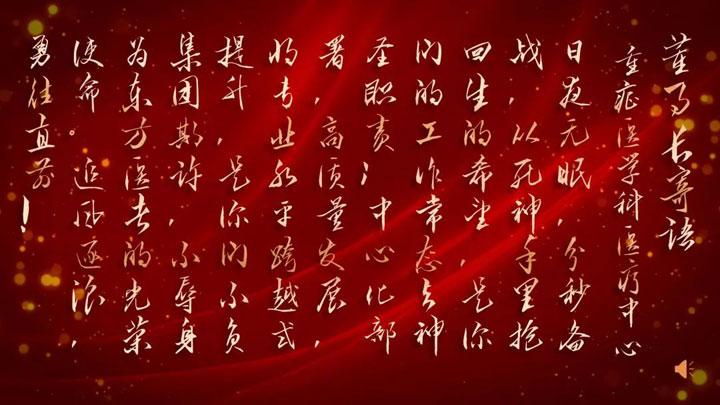 董事长寄语
重症医学科医疗中心
日夜无眠，分秒备
战，从死神手里抢
回生的希望，是你
们的工作常态与神
圣职责；中心化部
署，高质量发展，
的专业水平跨越式
提升，是你们不负
集团期许，不辱身
为东方医者的光荣
使命。追风逐浪，
勇往直前！